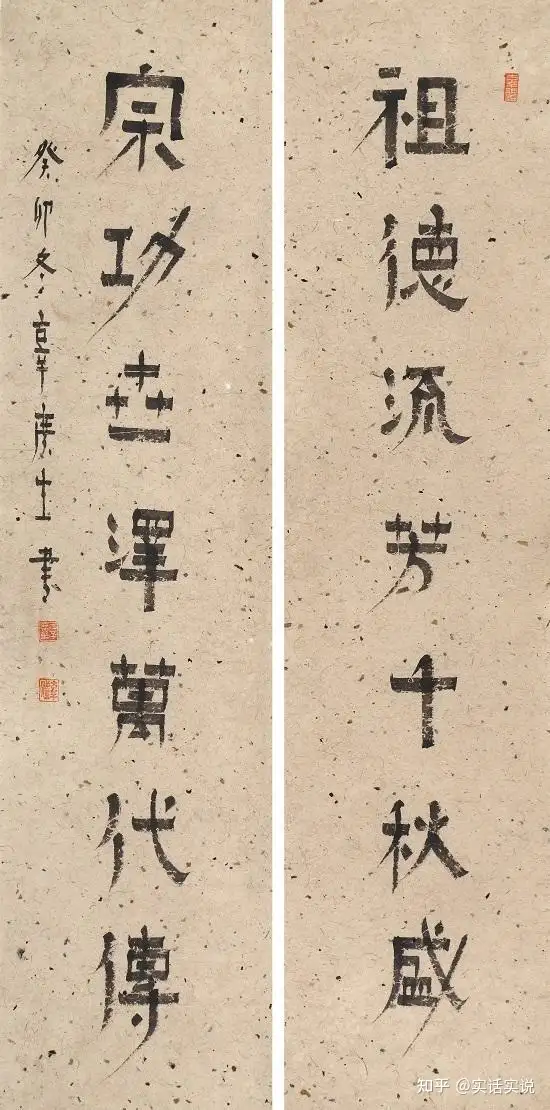 祖德流芳千秋盛
宗功世澤萬代傳
癸卯冬章庚生書
知乎 @实话实说